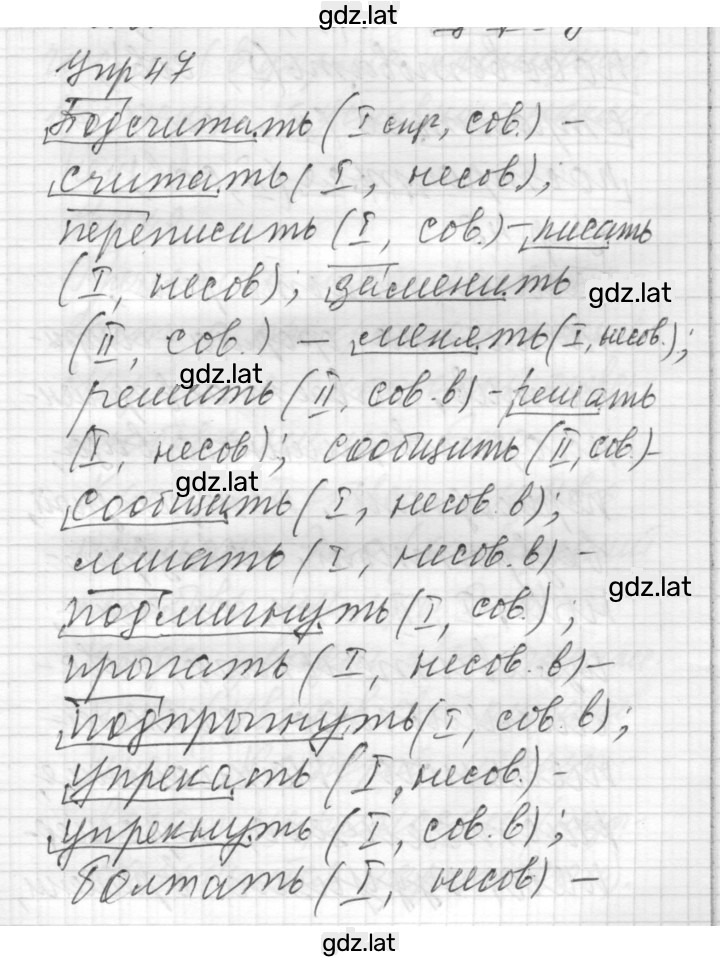 gdz.lat
Упр 47
Подсчитать (I спр, сов.) –
считать (I, несов.);
переписить (I, сов.) – писать
(I, несов); заменить
gdz.lat
(II, сов.) – менять (I, несов.);
gdz.lat
решить (II, сов. в) – решать
(I, несов); сообщить (II, сов.) –
gdz.lat
сообщить (I, несов. в);
мигать (I, несов. в) –
gdz.lat
подмигнуть (I, сов.);
прыгать (I, несов. в) –
подпрыгнуть (I, сов. в);
упрекать (I, несов.) –
упрекнуть (I, сов. в);
болтать (I, несов) –
gdz.lat